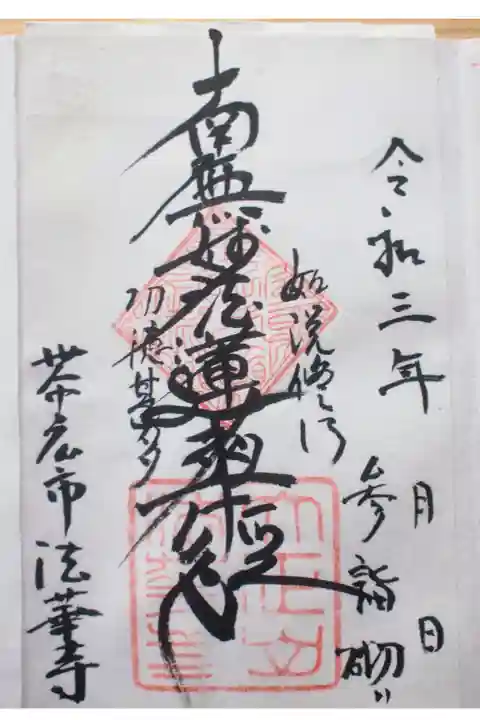 令和三年 月 日
参詣砌
如説修行
南無妙法蓮華経
功徳甚多
帯広市法華寺